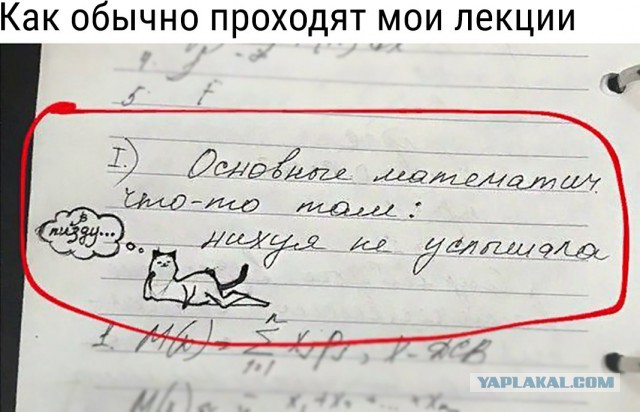 Как обычно проходят мои лекции
5
I.) Основные математич.
что-то там:
нихуя не услышала
в
пизду...
1. M(x) = ∑ xᵢpᵢ, X - ДСВ
YAPLAKAL.COM